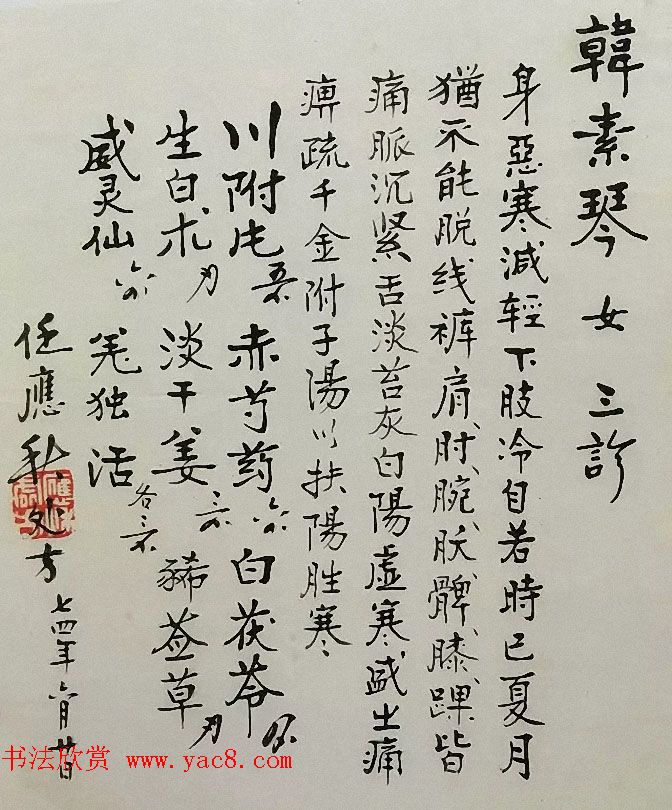 韓素琴 女 三診
身惡寒減輕下肢冷自若時已夏月
猶不能脱线裤肩、肘、腕、髀、膝、踝皆
痛脈沉紧舌淡苔灰白陽虚寒盛之痛
痹疏千金附子湯以扶陽胜寒
川附片 赤芍药 白茯苓
生白术 淡干姜 豨莶草
威灵仙 羌独活 各三钱
任應秋处方 七四年六月廿日
书法欣赏 www.yac8.com